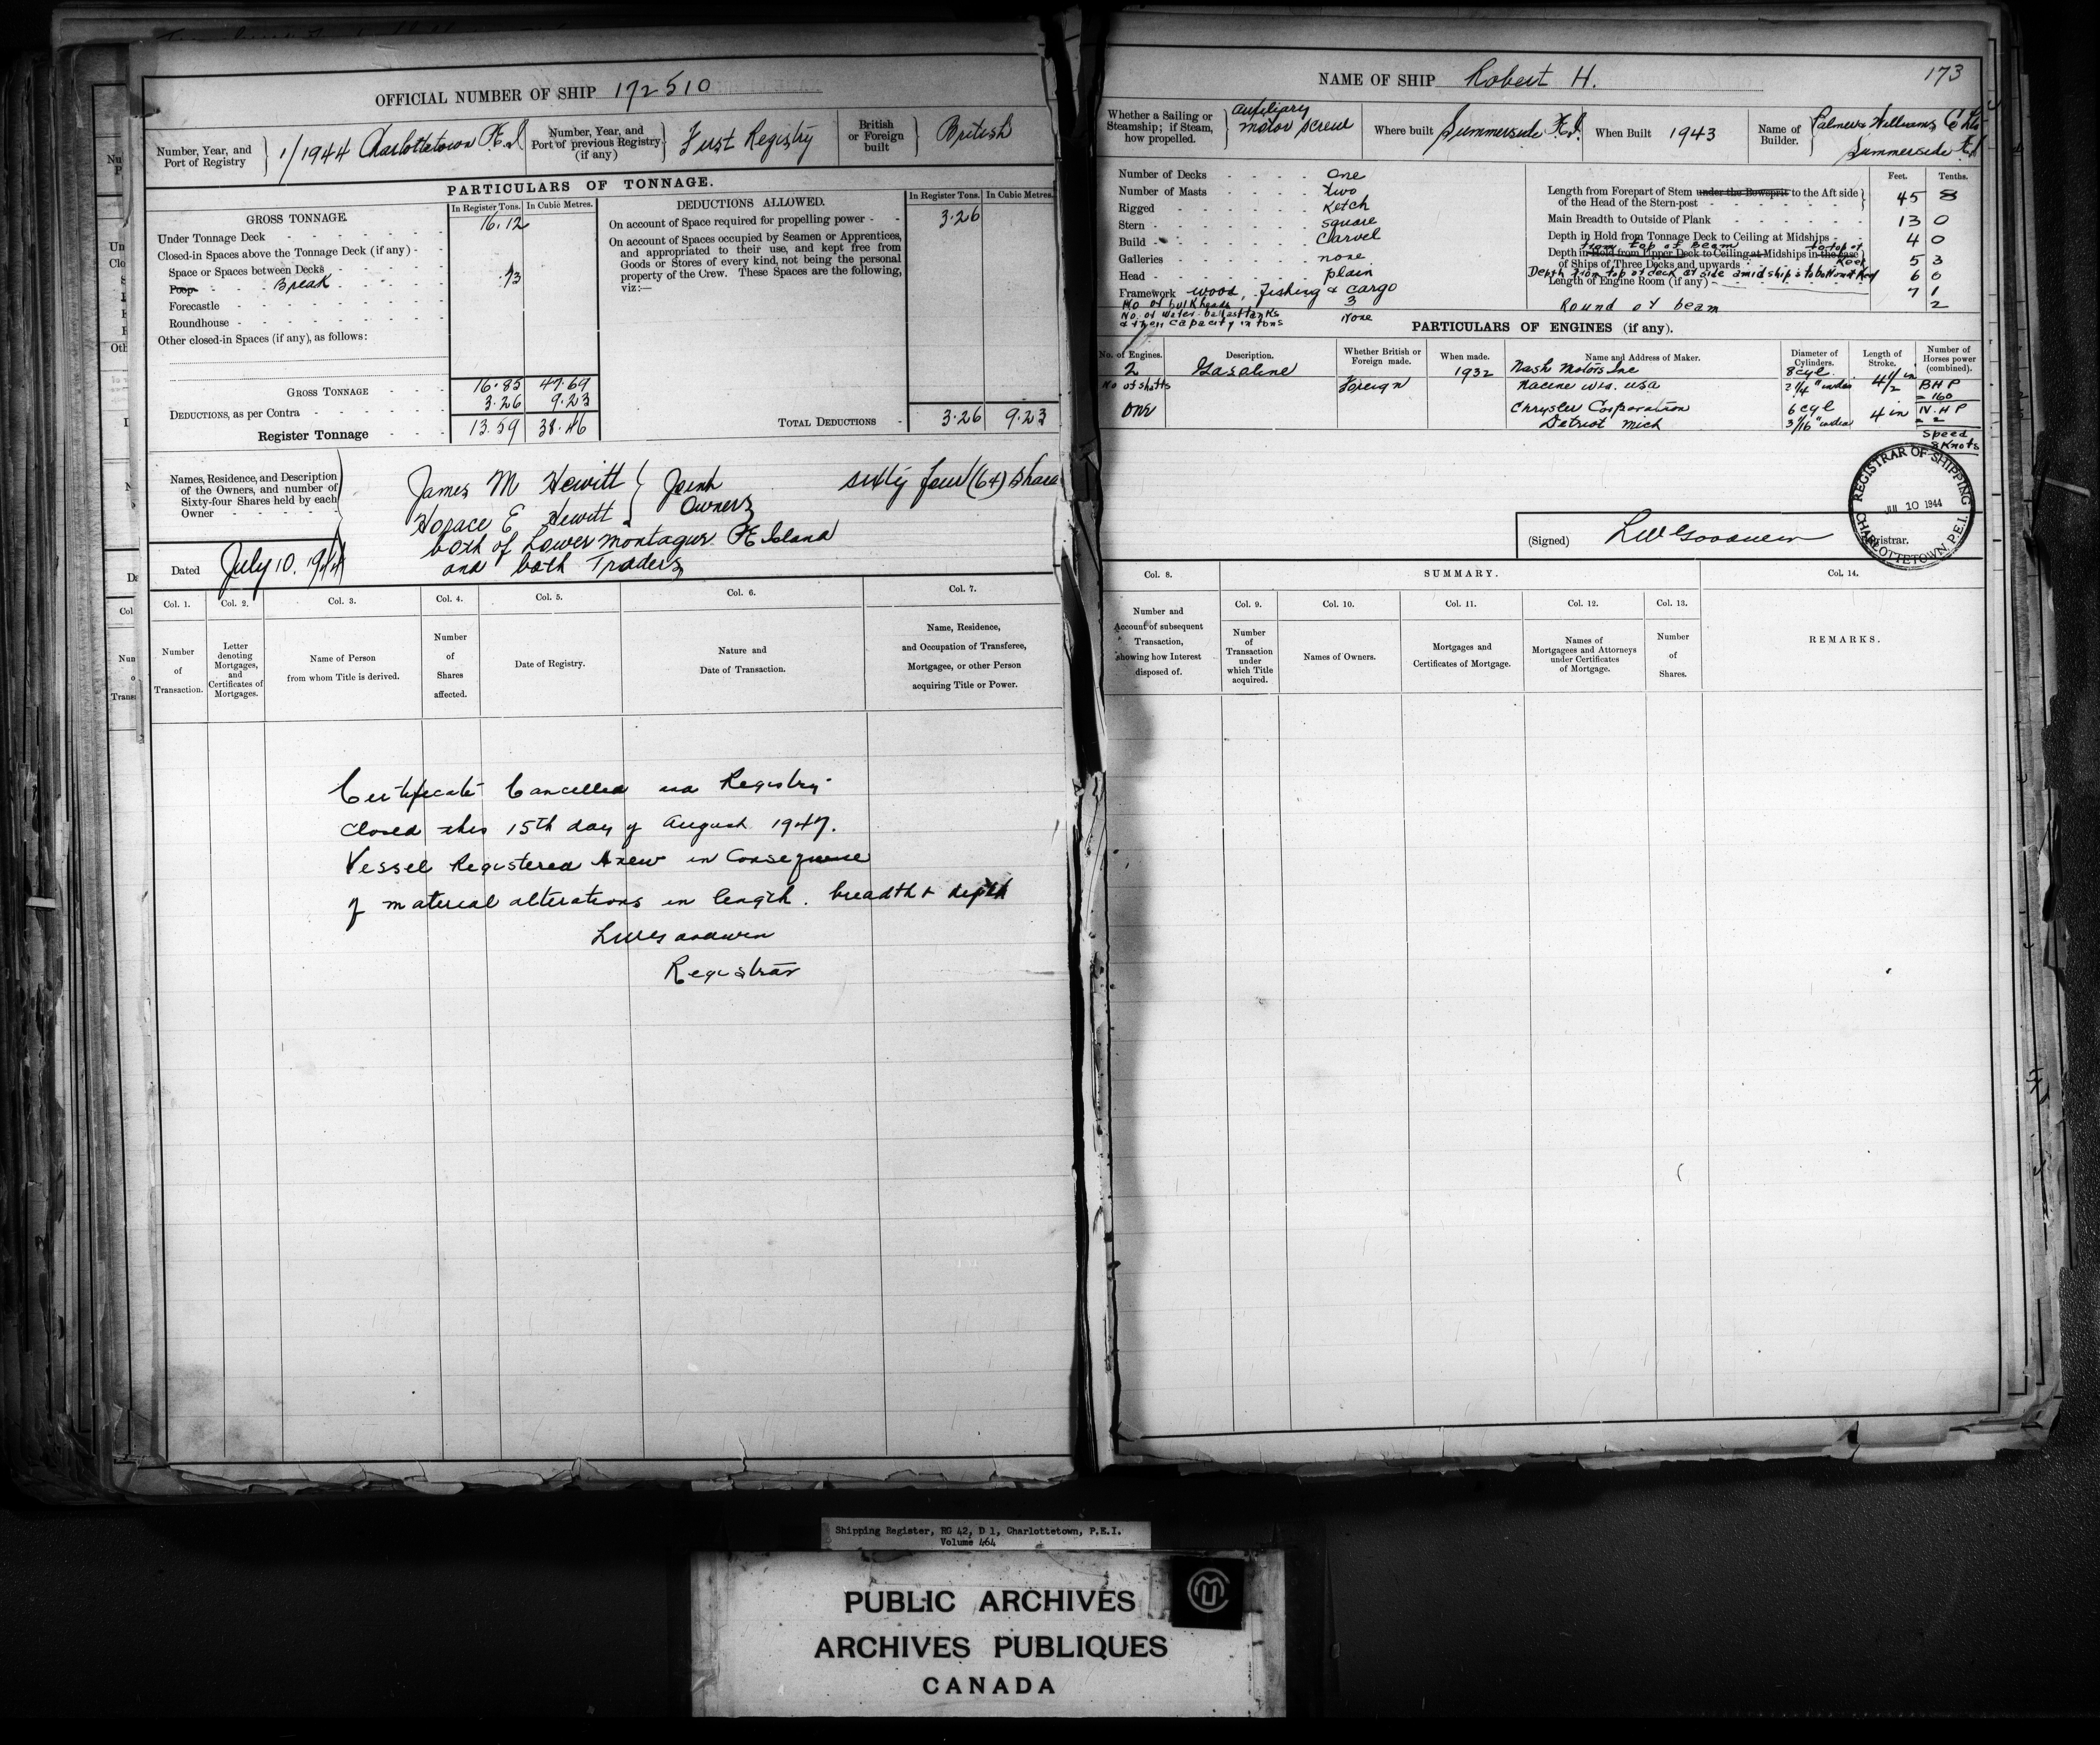 OFFICIAL NUMBER OF SHIP 172510
Number, Year, and Port of Registry 1/1944 Charlottetown P.E.I
Number, Year, and Port of previous Registry (if any) First Registry
British or Foreign built British
PARTICULARS OF TONNAGE.
In Register Tons. In Cubic Metres.
GROSS TONNAGE.
Under Tonnage Deck 16.12
Closed-in Spaces above the Tonnage Deck (if any)
Space or Spaces between Decks
Poop Break .73
Forecastle
Roundhouse
Other closed-in Spaces (if any), as follows:
GROSS TONNAGE 16.85 47.69
DEDUCTIONS, as per Contra 3.26 9.23
Register Tonnage 13.59 38.46
DEDUCTIONS ALLOWED.
In Register Tons. In Cubic Metres.
On account of Space required for propelling power 3.26
On account of Spaces occupied by Seamen or Apprentices,
and appropriated to their use, and kept free from
Goods or Stores of every kind, not being the personal
property of the Crew. These Spaces are the following,
viz:—
TOTAL DEDUCTIONS 3.26 9.23
Names, Residence, and Description
of the Owners, and number of
Sixty-four Shares held by each
Owner
James M Hewitt } Joint sixty four (64) Shares
Horace E Hewitt } Owners
both of Lower Montague P E Island
and both Traders
Dated July 10. 1944
Col. 1. Col. 2. Col. 3. Col. 4. Col. 5. Col. 6. Col. 7.
Number of Transaction.
Letter denoting Mortgages, and Certificates of Mortgages.
Name of Person from whom Title is derived.
Number of Shares affected.
Date of Registry.
Nature and Date of Transaction.
Name, Residence, and Occupation of Transferee, Mortgagee, or other Person acquiring Title or Power.
Certificate Cancelled and Registry
Closed this 15th day of August 1947.
Vessel Registered Anew in Consequence
of material alterations in length. breadth + depth
LW Goodwin
Registrar
NAME OF SHIP Robert H.
173
Whether a Sailing or Steamship; if Steam, how propelled. Auxiliary motor screw
Where built Summerside P.E.I
When Built 1943
Name of Builder. Palmer & Williams
Summerside P.E.I
Number of Decks One
Number of Masts Two
Rigged Ketch
Stern Square
Build Carvel
Galleries none
Head plain
Framework wood, Fishing & cargo
No of bulkheads 3
No. of water ballast tanks
& their capacity in tons None
Feet. Tenths.
Length from Forepart of Stem under the Bowsprit to the Aft side
of the Head of the Stern-post 45 8
Main Breadth to Outside of Plank 13 0
Depth in Hold from Tonnage Deck to Ceiling at Midships 4 0
from top of Beam to top of Keel
Depth in Hold from Upper Deck to Ceiling at Midships in the case
of Ships of Three Decks and upwards 5 3
Depth from top of deck at side amidships to bottom of Keel 6 0
Length of Engine Room (if any) 7 1
Round of beam 2
PARTICULARS OF ENGINES (if any).
No. of Engines. Description. Whether British or Foreign made. When made. Name and Address of Maker. Diameter of Cylinders. Length of Stroke. Number of Horses power (combined).
2 Gasoline Foreign 1932 Nash Motors Inc 8 cyl
Racine Wis. USA 4 1/2 in BHP = 160
No of shafts
One
Chrysler Corporation 6 cyl 4 in N.H.P
Detroit Mich
Speed
8 Knots
REGISTRAR OF SHIPPING
JUL 10 1944
CHARLOTTETOWN, P.E.I.
(Signed) LW Goodwin Registrar.
Col. 8. SUMMARY. Col. 14.
Col. 9. Col. 10. Col. 11. Col. 12. Col. 13.
Number and Account of subsequent Transaction, showing how Interest disposed of.
Number of Transaction under which Title acquired.
Names of Owners.
Mortgages and Certificates of Mortgage.
Names of Mortgagees and Attorneys under Certificates of Mortgage.
Number of Shares.
REMARKS.
Shipping Register, RG 42, D 1, Charlottetown, P.E.I.
Volume 464
PUBLIC ARCHIVES
ARCHIVES PUBLIQUES
CANADA